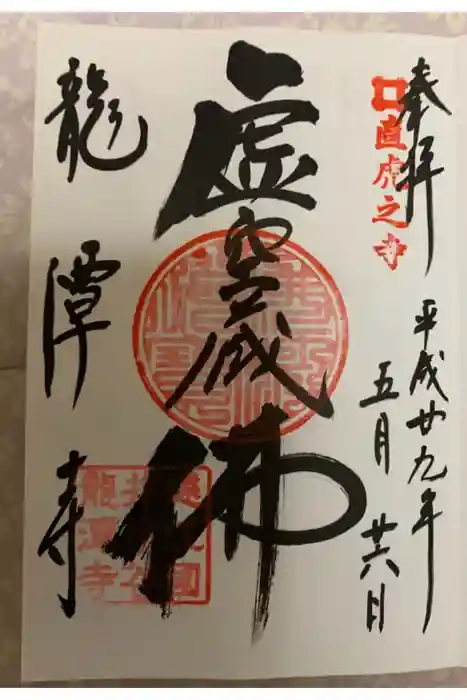 奉拝
直虎之寺
平成廿九年
五月廿六日
虚空蔵佛
龍潭寺
龍潭寺